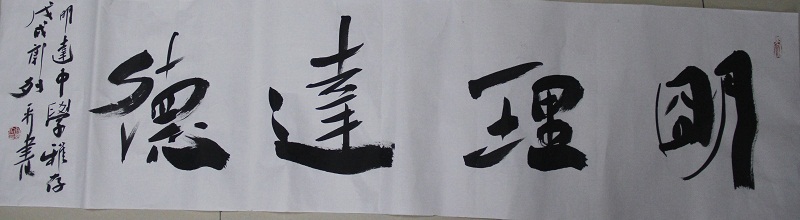 明理達德
明達中學雅存
戊戌
書